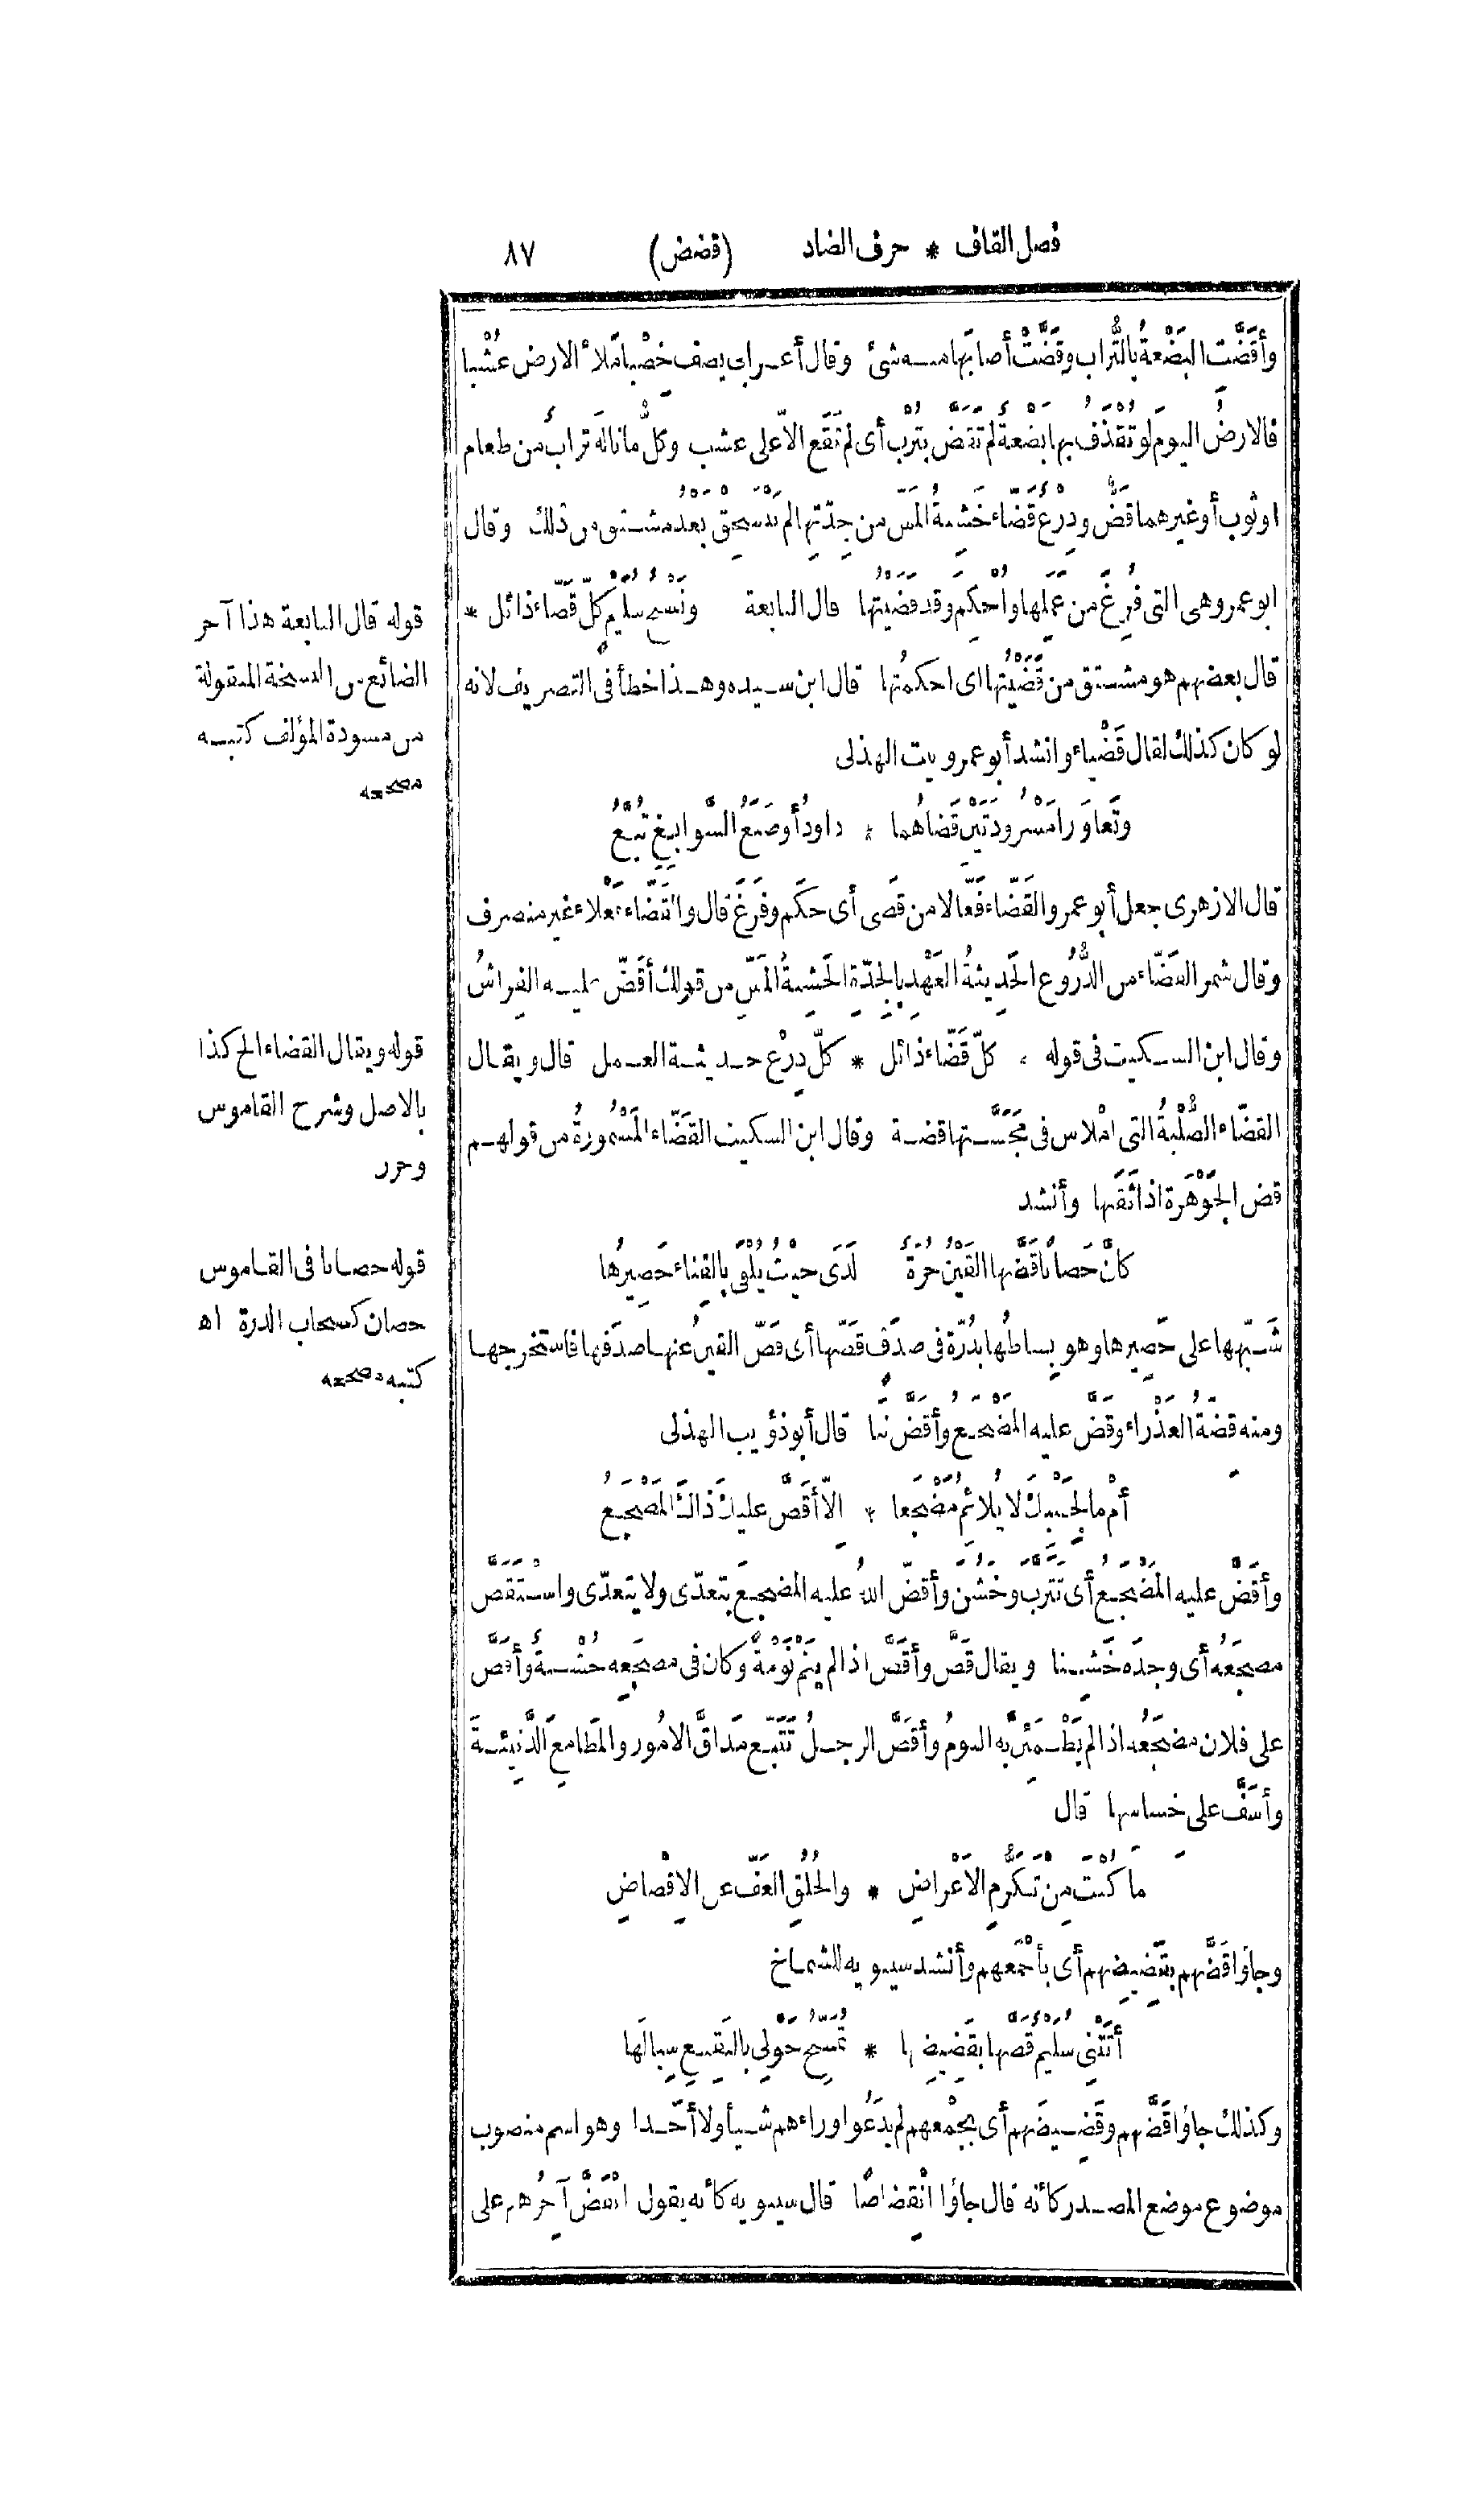 فصل القاف * حرف الضاد (قضض) ٨٧
وأَقَضَّت البَضْعةُ بالتُّراب وقَضَّتْ أصابَها منه شئ وقال أعرابى يصف خِصْبا مَلأ الارض عُشْبا
فالارضُ اليومَ لو تُقْذَفُ بها بَضْعةٌ لم تَقَضَّ بتُرْب أى لم تَقَع الاّ على عشب وكلُّ ما نالَه ترابٌ من طعام
او ثوب أو غيرهما قَضٌّ ودِرْعٌ قَضّاء خَشِنةُ المَسّ من جِدّتِها لم تَنْسَحِقْ بَعْدُ مشتق من ذلك وقال
ابو عمرو هى التى فُرِغَ من عَمَلِها وأُحْكِم وقد قَضَيْتُها قال النابغة ونَسْجُ سُلَيْمٍ كلّ قَضّاء ذائل *
قال بعضهم هو مشتق من قَضَيْتُها اى احكمتُها قال ابن سيده وهذا خطأ فى التصريف لانه
لو كان كذلك لقال قَضْياء وانشد أبو عمرو بيت الهذلى
وتَعاوَرا مَسْرُودَتَيْنِ قَضاهُما * داودُ أو صَنَعُ السَّوابِغِ تُبَّعُ
قال الازهرى جعل أبو عمرو القَضّاء فَعّالا من قَضى أى حكَم وفَرَغَ قال والقَضّاء فَعْلاء غير منصرف
وقال شمر القَضّاء من الدُّرُوع الحَدِيثةُ العَهْدِ بالجِدّةِ الخَشِنةُ المَسِّ من قولك أقَضّ عليه الفِراشُ
وقال ابن السكيت فى قوله * كلّ قَضّاء ذائل * كلّ دِرْع حديثة العمل قال ويقال
القضّاء الصُّلْبةُ التى امْلاس فى مَجَسَّتها قضة وقال ابن السكيت القَضّاء المَسْمُورةُ من قولهم
قض الجَوْهَرة اذا ثَقَبَها وأنشد
كأنَّ حَصانًا قَضَّها القَيْنُ حُرّةٌ لَدَى حيثُ يُلْقَى بالفِناء حَصِيرُها
شَبَّهَها على حَصِيرها وهو بِساطُها بدُرّة فى صدَفٍ قَضّها أى قَضّ القينُ عنها صدَفَها فاستخرجها
ومنه قِضّةُ العَذْراء وقَضَّ عليه المَضْجَعُ وأقَضَّ نَبا قال أبو ذؤيب الهذلى
أمْ ما لِجَنْبِكَ لا يُلائمُ مَضْجَعا * إلاّ أَقَضَّ عليكَ ذاكَ المَضْجَعُ
وأقَضَّ عليه المَضْجَعُ أى تَتَرَّبَ وخَشُنَ وأقضّ اللهُ عليه المضجعَ يتعدّى ولا يتعدّى واسْتَقَضَّ
مضجَعَه أى وجدَه خَشِنا ويقال قَضَّ وأقَضَّ اذا لم يَنَمْ نَوْمةً وكان فى مضجَعِه خُشْنةٌ وأقَضَّ
على فلان مضجَعُه اذا لم يَطْمَئِنَّ به النومُ وأقَضَّ الرجلُ تَتَبّع مَداقَّ الامُور والمَطامِعَ الدَّنِيئةَ
وأسَفَّ على خساسها قال
ما كُنْتَ مِنْ تَكَرُّمِ الاَعْراضِ * والخُلُقِ العَفّ عن الاِقْضاضِ
وجاؤا قَضَّهم بقَضِيضِهم أى بأجْمَعهم وأنشد سيبويه للشماخ
أَتَتْنِى سُلَيْمٌ قَضُّها بقَضِيضِها * تُمَسِّحُ حَوْلى بالبَقِيعِ سِبالَها
وكذلك جاؤا قَضَّهم وقَضِيضَهم أى بجَمْعهم لم يدَعُوا وراءهم شيأ ولا أحَدا وهو اسم منصوب
موضوع موضع المصدر كأنه قال جاؤا انْقِضاضًا قال سيبويه كأنه يقول انْقَضَّ آخِرُهم على
قوله قال النابغة هذا آخر
الضائع من النسخة المنقولة
من مسودة المؤلف كتبه
مصححه
قوله ويقال القضاء الخ كذا
بالاصل وشرح القاموس
وحرر
قوله حصانا فى القاموس
حصان كسحاب الدرة اه
كتبه مصححه